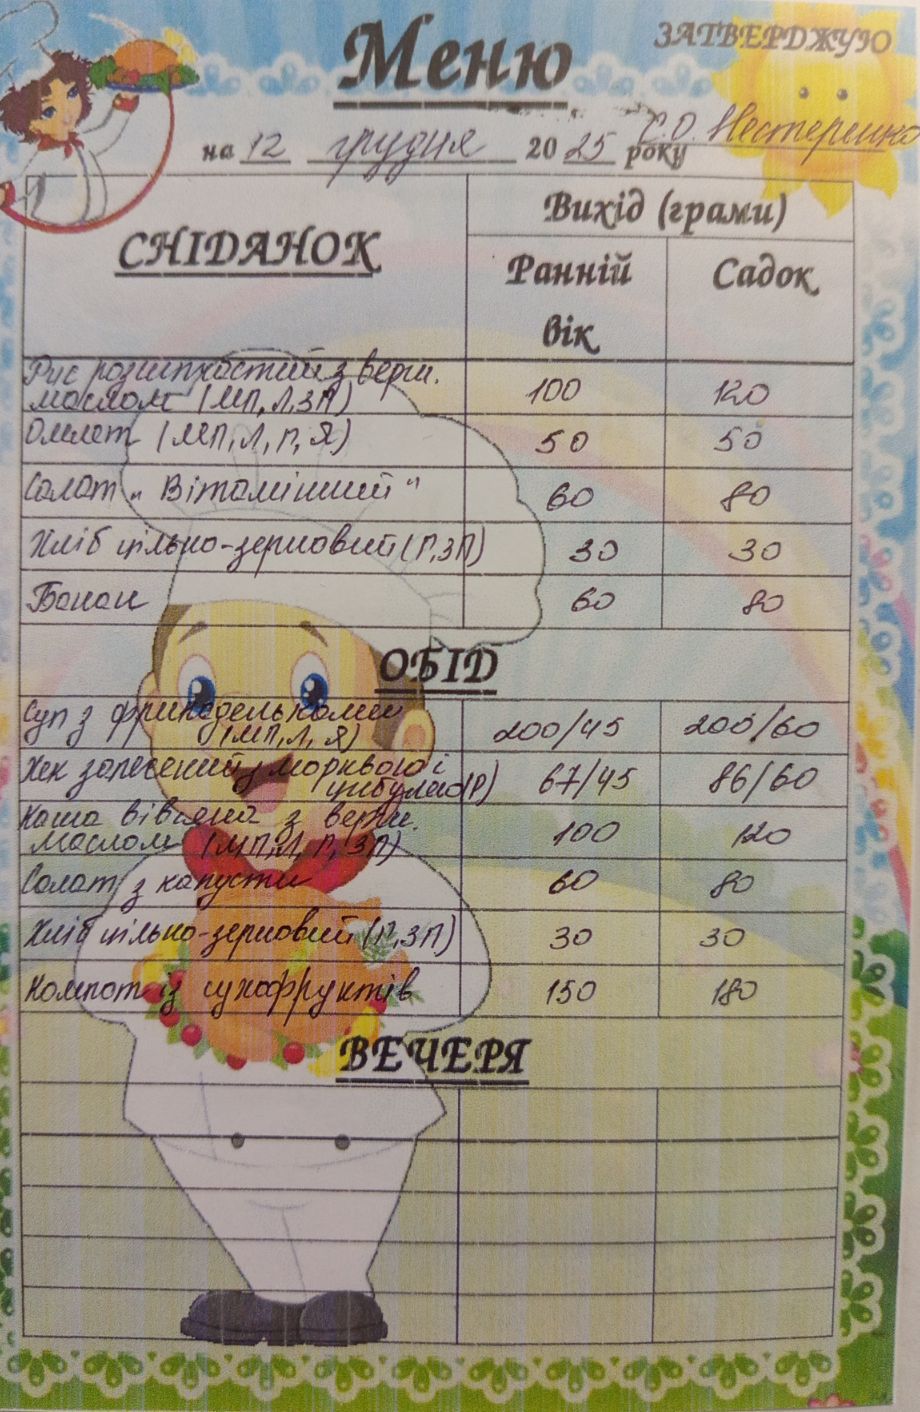 ЗАТВЕРДЖУЮ
Меню
С.О. Нестеренко
на 12 грудня 2025 року
СНІДАНОК
Вихід (грами)
Ранній вік
Садок
Рис розсипчастий з верш.
маслом (МП, Л, ЗП) 100 120
Омлет (МП, Л, Г, Я) 50 50
Салат „Вітамінний" 60 80
Хліб цільно-зерновий (Г, ЗП) 30 30
Банан 60 80
ОБІД
Суп з фрикадельками
(МП, Л, Я) 200/45 200/60
Хек запечений з морквою і
цибулею (Р) 67/45 86/60
Каша вівсяна з верш.
маслом (МП, Л, Г, ЗП) 100 120
Салат з капусти 60 80
Хліб цільно-зерновий (Г, ЗП) 30 30
Компот із сухофруктів 150 180
ВЕЧЕРЯ